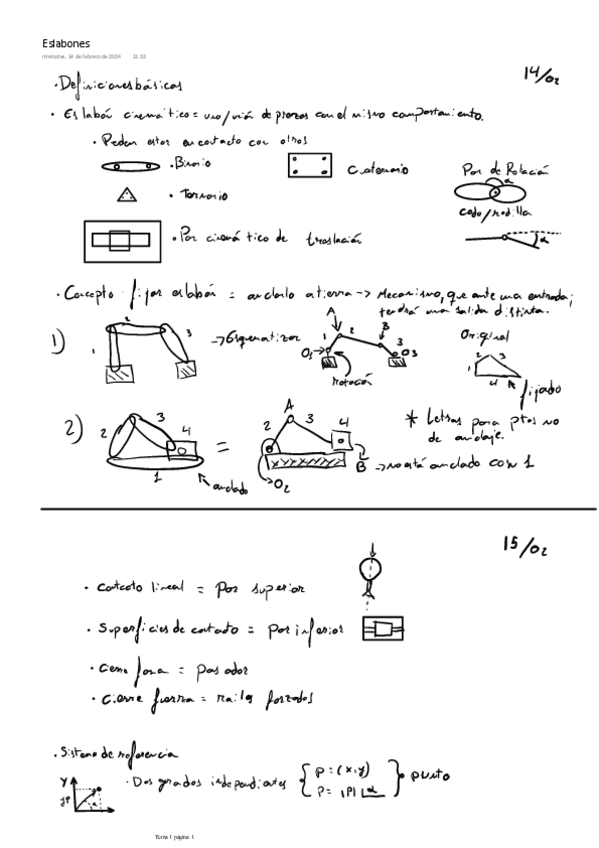 Eslabones
miércoles, 14 de febrero de 2024 11:32
14/02
· Definiciones básicas
· Eslabón cinemático = uno/unión de piezas con el mismo comportamiento.
· Pueden estar en contacto con otros
· Binario
Cuaternario
Par de Rotación
α
· Ternario
codo/rodilla
· Par cinemático de traslación
α
· Concepto fijar eslabón = anclarlo a tierra -> Mecanismo, que ante una entrada,
tendrá una salida distinta.
1)
1 2 3
-> Esquematizar
A B
O₁ 1 2 3 O₃
rotación
Original
1 2 3 4
fijado
2)
2 3 4
1
anclado
=
A
2 3 4
O₂
B -> no está anclado con 1
* Letras para ptos no
de anclaje.
15/02
· Contacto lineal = Par superior
· Superficies de contacto = Par inferior
· Cierre forma = pasador
· Cierre fuerza = railes forzados
· Sistema de referencia
y
yP
· Dos grados independientes
P = (x, y)
P = |P| α
punto
Tema 1 página 1